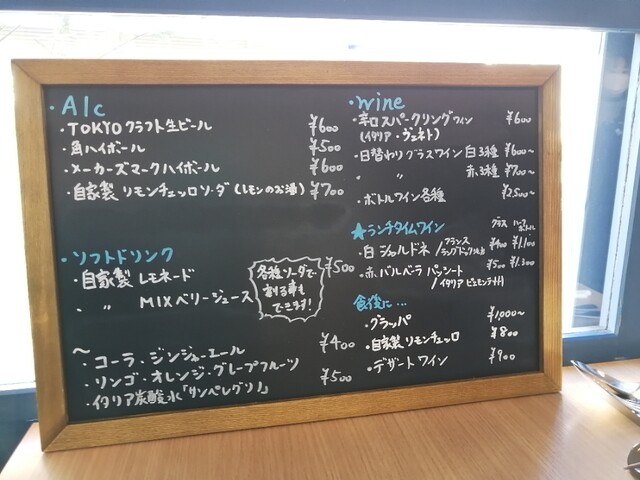 ・Alc
・TOKYOクラフト生ビール ¥600
・角ハイボール ¥500
・メーカーズマークハイボール ¥600
・自家製リモンチェッロソーダ(レモンのお酒) ¥700
・ソフトドリンク
・自家製 レモネード ¥500
・ 〃 MIXベリージュース
各種ソーダで
割る事も
できます!
〜
・コーラ・ジンジャーエール ¥400
・リンゴ・オレンジ・グレープフルーツ
・イタリア炭酸水「サンペレグリノ」 ¥500
・wine
・辛口スパークリングワイン ¥600
(イタリア・ヴェネト)
・日替わりグラスワイン 白3種 ¥600〜
赤3種 ¥700〜
・ボトルワイン各種 ¥2,500〜
★ランチタイムワイン グラス ハーフボトル
・白 シャルドネ /フランス ラングドックルション ¥400 ¥1,100
・赤 バルベーラ パッシート ¥500 ¥1,300
/イタリア ピエモンテ州
食後に…
・グラッパ ¥1,000〜
・自家製リモンチェッロ ¥800
・デザートワイン ¥900